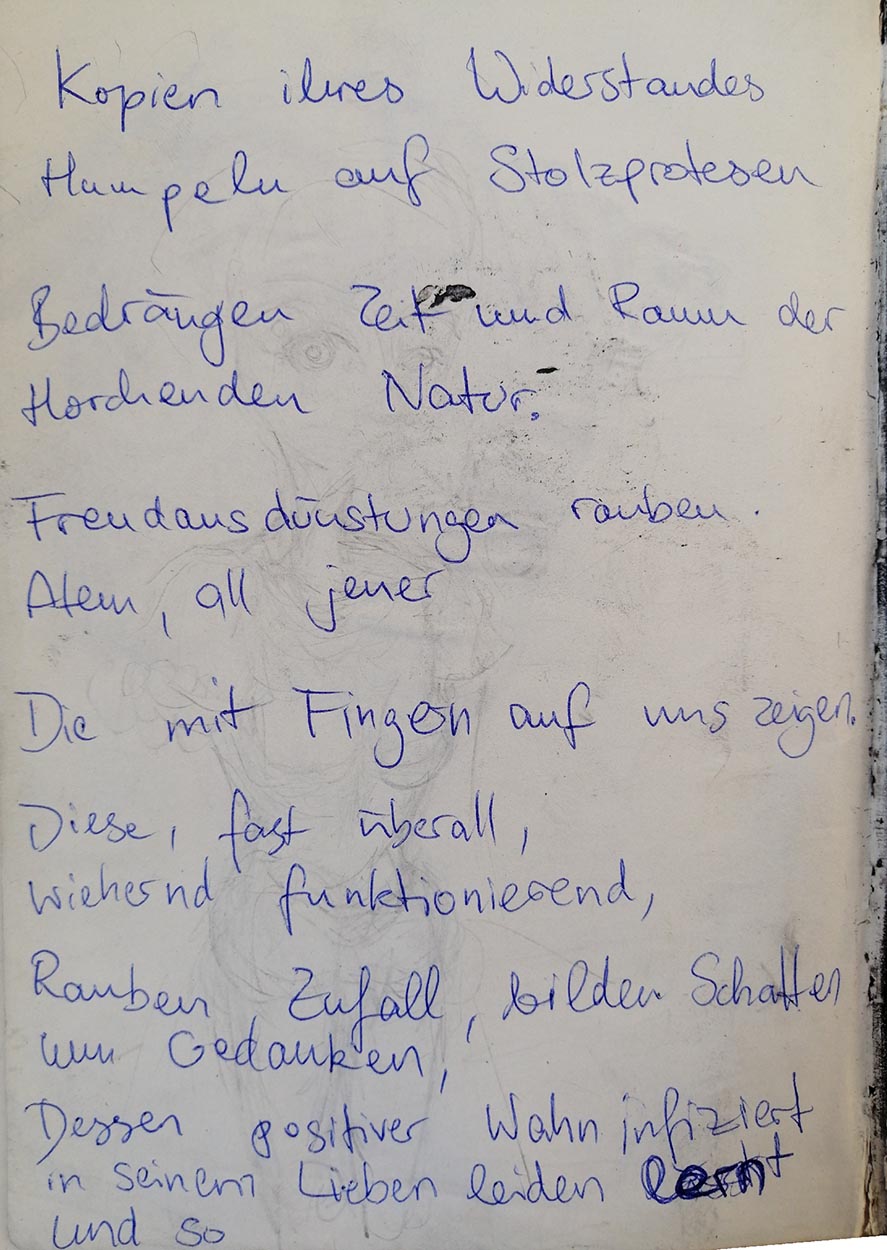 Kopien ihres Widerstandes
Humpeln auf Stolzprotesen
Bedrängen Zeit und Raum der
Horchenden Natur.
Freudausdünstungen rauben
Atem, all jener
Die mit Fingern auf uns zeigen.
Diese, fast überall,
wiehernd funktionierend,
Rauben, Zufall, bilden Schatten
um Gedanken,
Dessen positiver Wahn infiziert
in seinem Lieben leiden lernt
und so